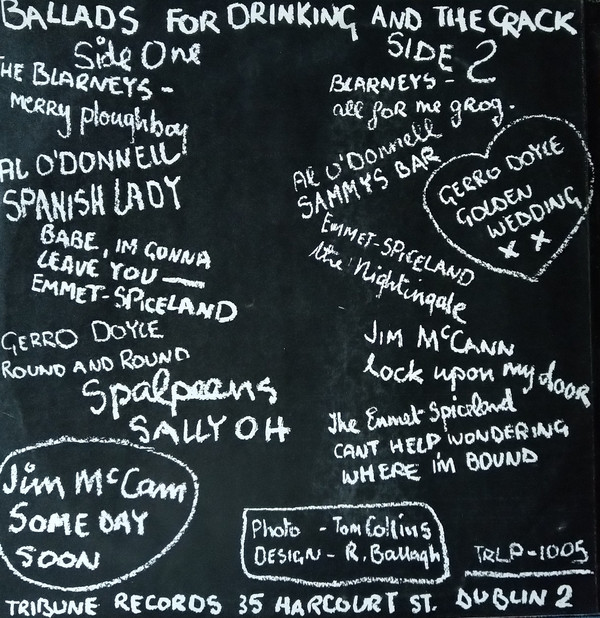 BALLADS FOR DRINKING AND THE CRACK
Side One
THE BLARNEYS -
merry ploughboy
AL O'DONNELL
SPANISH LADY
BABE, IM GONNA
LEAVE YOU —
EMMET-SPICELAND
GERRO DOYLE
ROUND AND ROUND
Spalpeens
SALLY OH
Jim McCann
SOME DAY
SOON
SIDE 2
BLARNEYS -
all for me grog.
AL O'Donnell
SAMMYS BAR
GERRO DOYLE
GOLDEN
WEDDING
X X
EMMET-SPICELAND
the Nightingale
JIM McCANN
Lock upon my door
The Emmet Spiceland
CANT HELP WONDERING
WHERE I'M BOUND
Photo - Tom Collins
DESIGN - R. Ballagh
TRLP-1005
TRIBUNE RECORDS 35 HARCOURT ST. DUBLIN 2